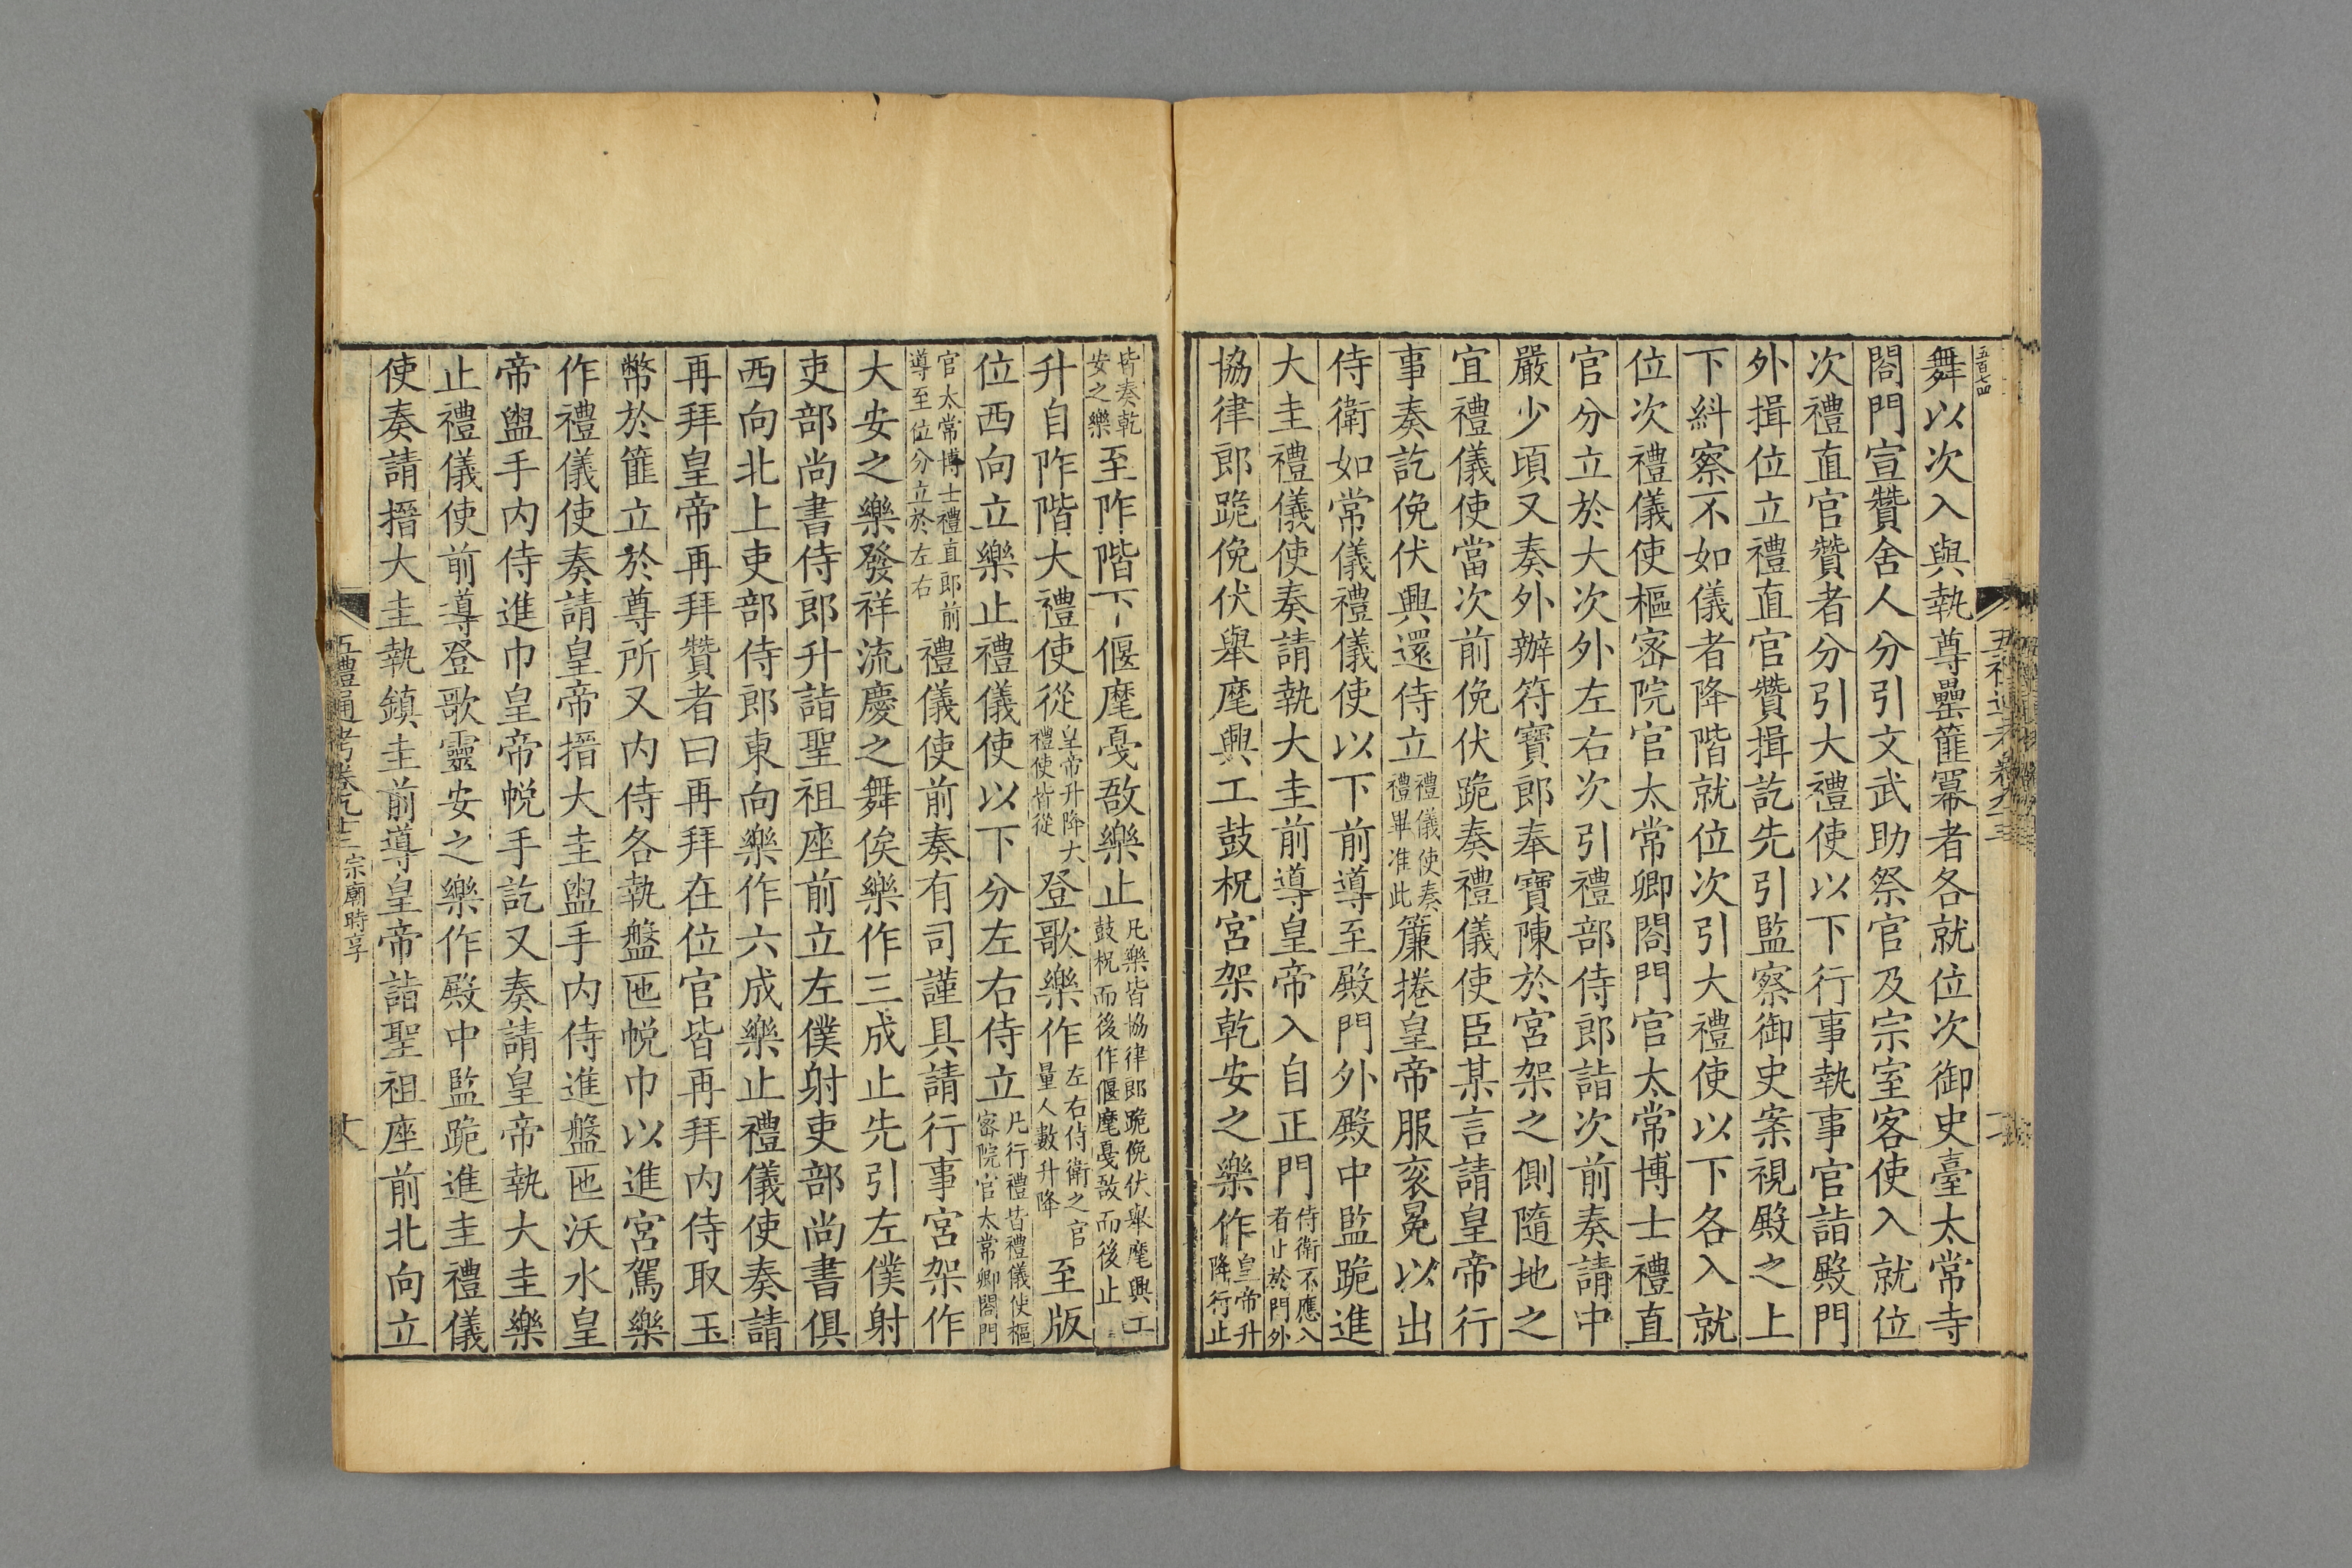 五百七四
舞以次入與執尊罍篚冪者各就位次御史臺太常寺
閤門宣贊舍人分引文武助祭官及宗室客使入就位
次禮直官贊者分引大禮使以下行事執事官詣殿門
外揖位立禮直官贊揖訖先引監察御史案視殿之上
下糾察不如儀者降階就位次引大禮使以下各入就
位次禮儀使樞密院官太常卿閤門官太常博士禮直
官分立於大次外左右次引禮部侍郎詣次前奏請中
嚴少頃又奏外辦符寶郎奉寶陳於宮架之側隨地之
宜禮儀使當次前俛伏跪奏禮儀使臣某言請皇帝行
事奏訖俛伏興還侍立禮儀使奏禮畢准此簾捲皇帝服衮冕以出
侍衛如常儀禮儀使以下前導至殿門外殿中監跪進
大圭禮儀使奏請執大圭前導皇帝入自正門侍衛不應入者止於門外
協律郎跪俛伏舉麾興工鼓柷宮架乾安之樂作皇帝升降行止
皆奏乾安之樂至阼階下偃麾戛敔樂止凡樂皆協律郎跪俛伏舉麾興工鼓柷而後作偃麾戛敔而後止
升自阼階大禮使從皇帝升降大禮使皆從登歌樂作左右侍衛之官量人數升降至版
位西向立樂止禮儀使以下分左右侍立凡行禮皆禮儀使樞密院官太常卿閤門
官太常博士禮直郎前導至位分立於左右禮儀使前奏有司謹具請行事宮架作
大安之樂發祥流慶之舞俟樂作三成止先引左僕射
吏部尚書侍郎升詣聖祖座前立左僕射吏部尚書俱
西向北上吏部侍郎東向樂作六成樂止禮儀使奏請
再拜皇帝再拜贊者曰再拜在位官皆再拜內侍取玉
幣於篚立於尊所又內侍各執盤匜帨巾以進宮駕樂
作禮儀使奏請皇帝搢大圭盥手內侍進盤匜沃水皇
帝盥手內侍進巾皇帝帨手訖又奏請皇帝執大圭樂
止禮儀使前導登歌靈安之樂作殿中監跪進圭禮儀
使奏請搢大圭執鎮圭前導皇帝詣聖祖座前北向立
五禮通考卷九十三 宗廟時享